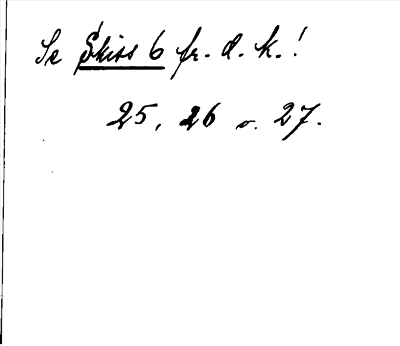 Se Skiss 6 fr. d. k.!
25, 26 o. 27.